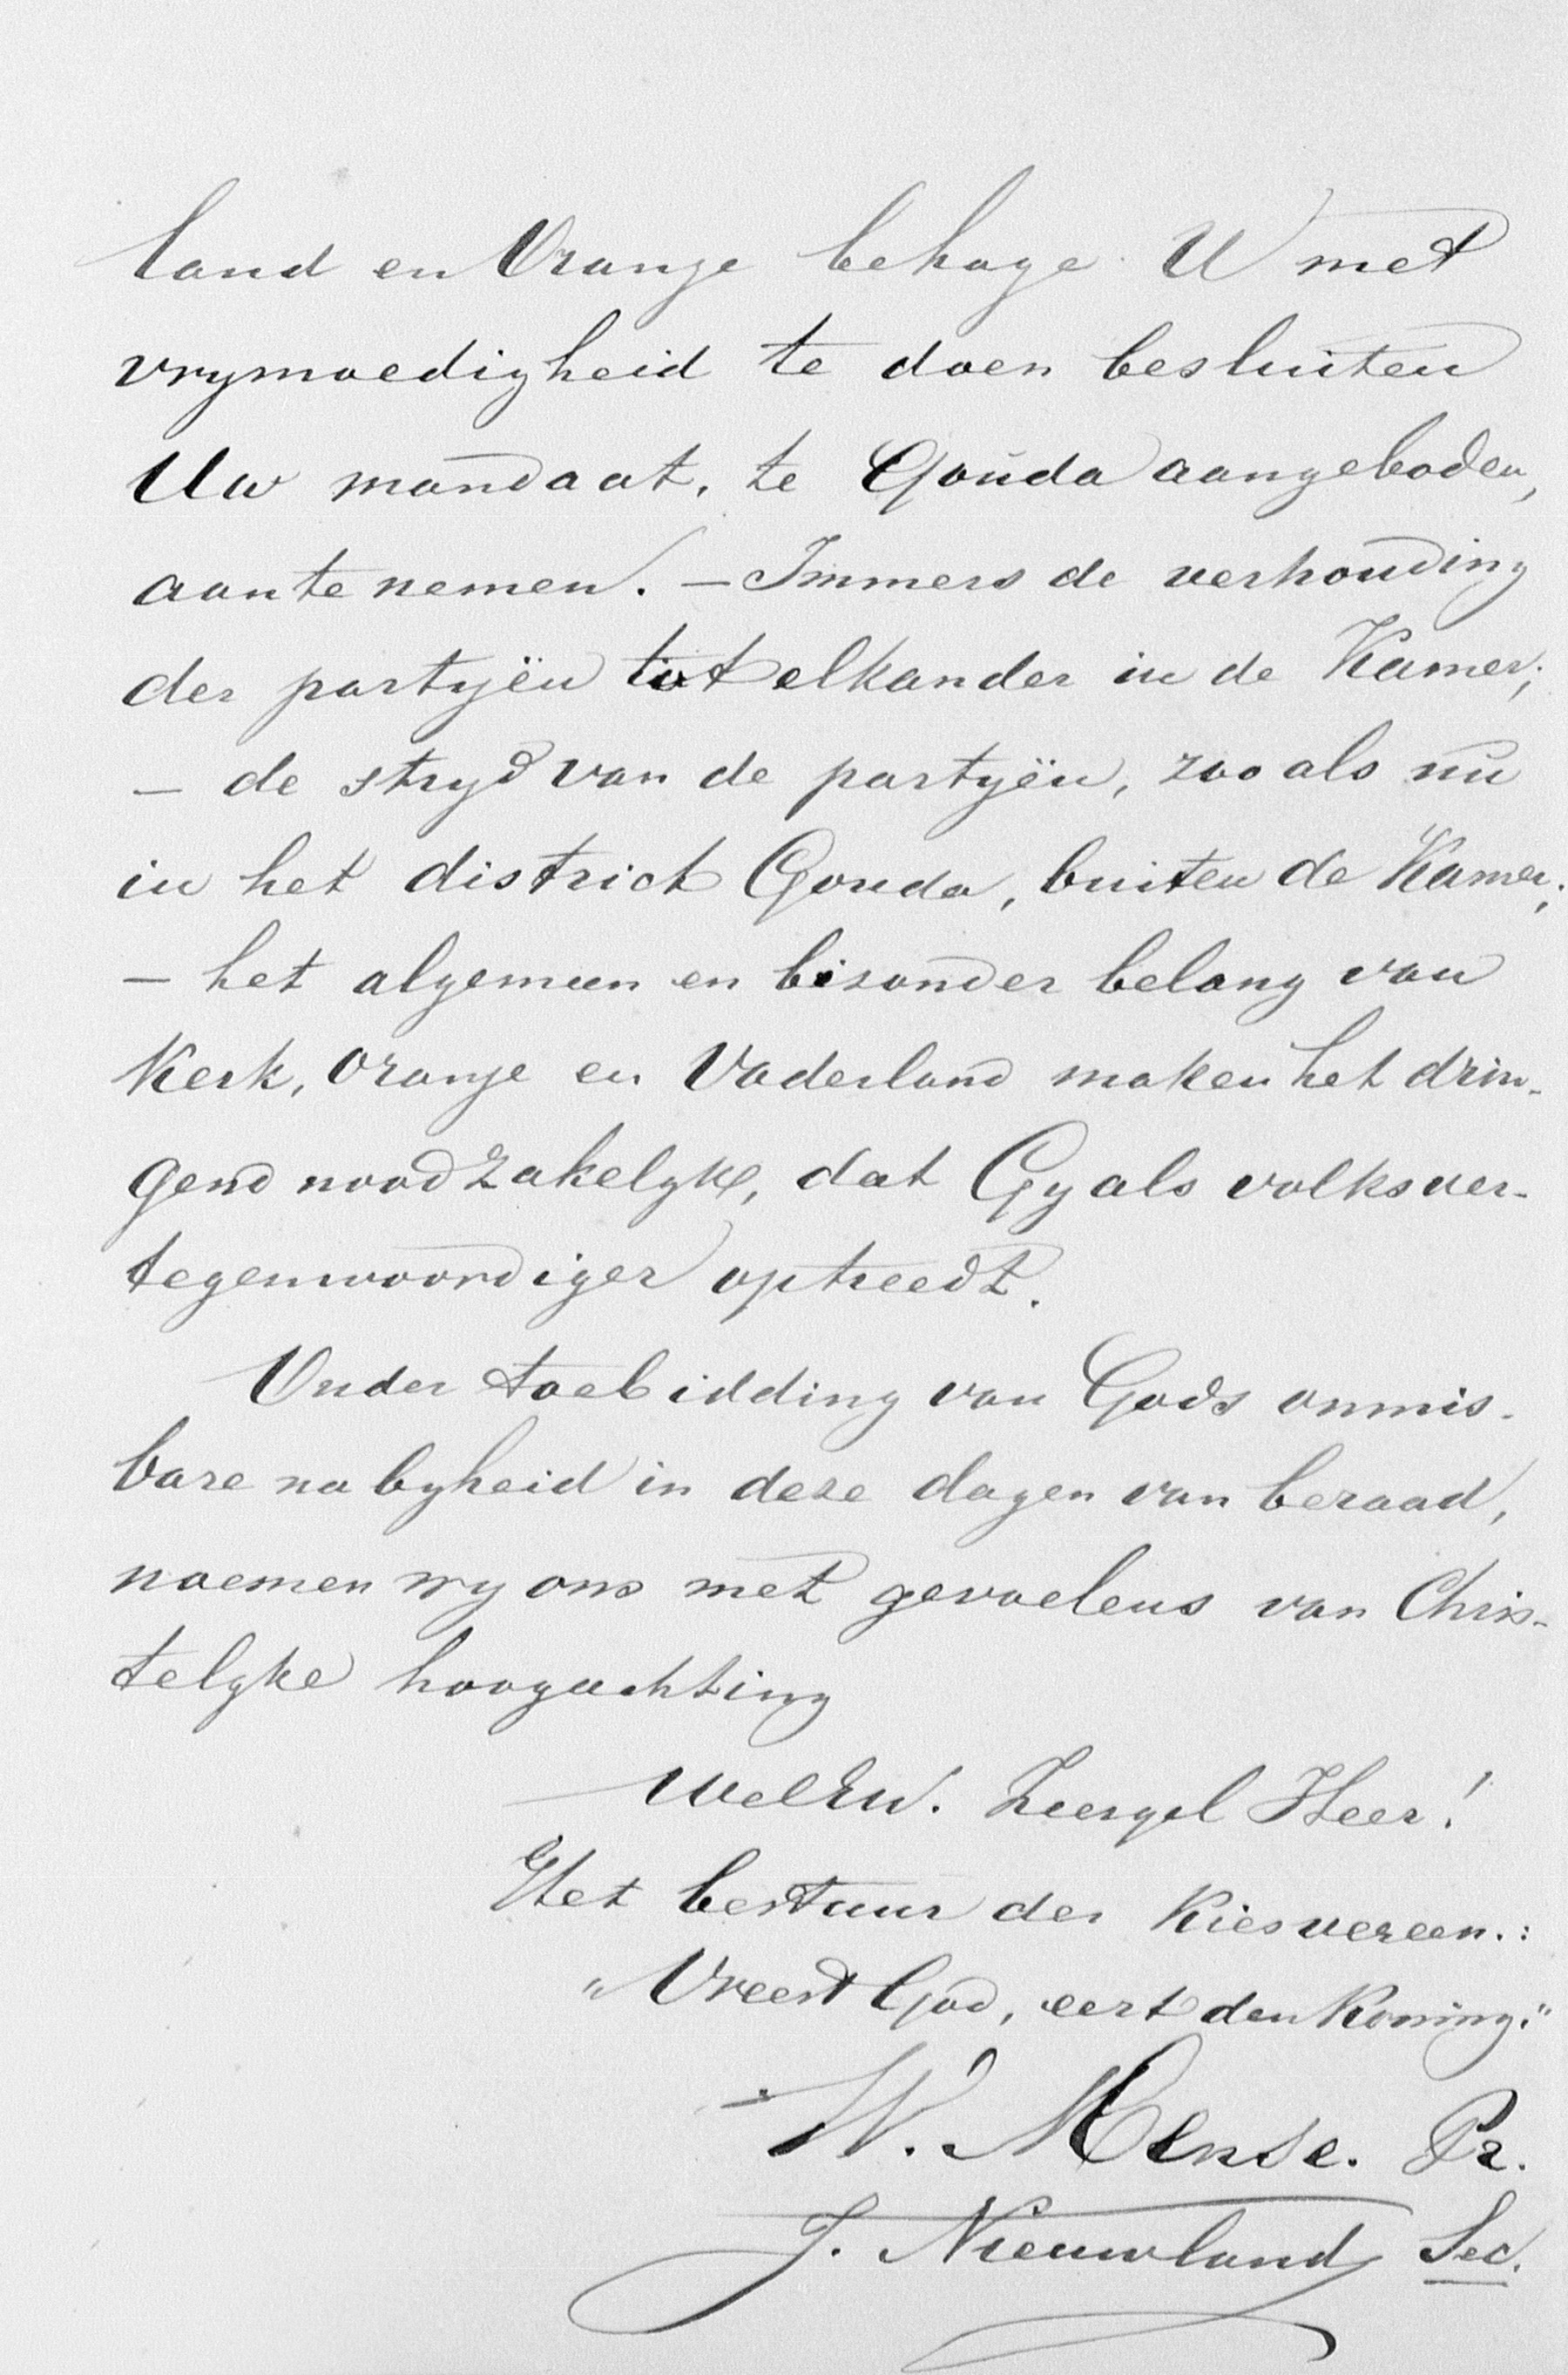 land en Oranje behage U met
vrymoedigheid te doen besluiten
Uw mandaat, te Gouda aangeboden,
aan te nemen. — Immers de verhouding
der partyën tot elkander in de Kamer;
— de stryd van de partyën, zooals nu
in het district Gouda, buiten de Kamer;
— het algemeen en bisonder belang van
Kerk, Oranje en Vaderland maken het drin-
gend noodzakelyk, dat Gy als volksver-
tegenwoordiger optreedt.
Onder toebidding van Gods onmis-
bare nabyheid in deze dagen van beraad,
noemen wy ons met gevoelens van Chris-
telyke hoogachting
WelEw. Zeergel Heer!
Het bestuur der Kiesvereen.:
"Vreest God, eert den Koning."
W. Mense. Pr.
J. Nieuwland Sec.